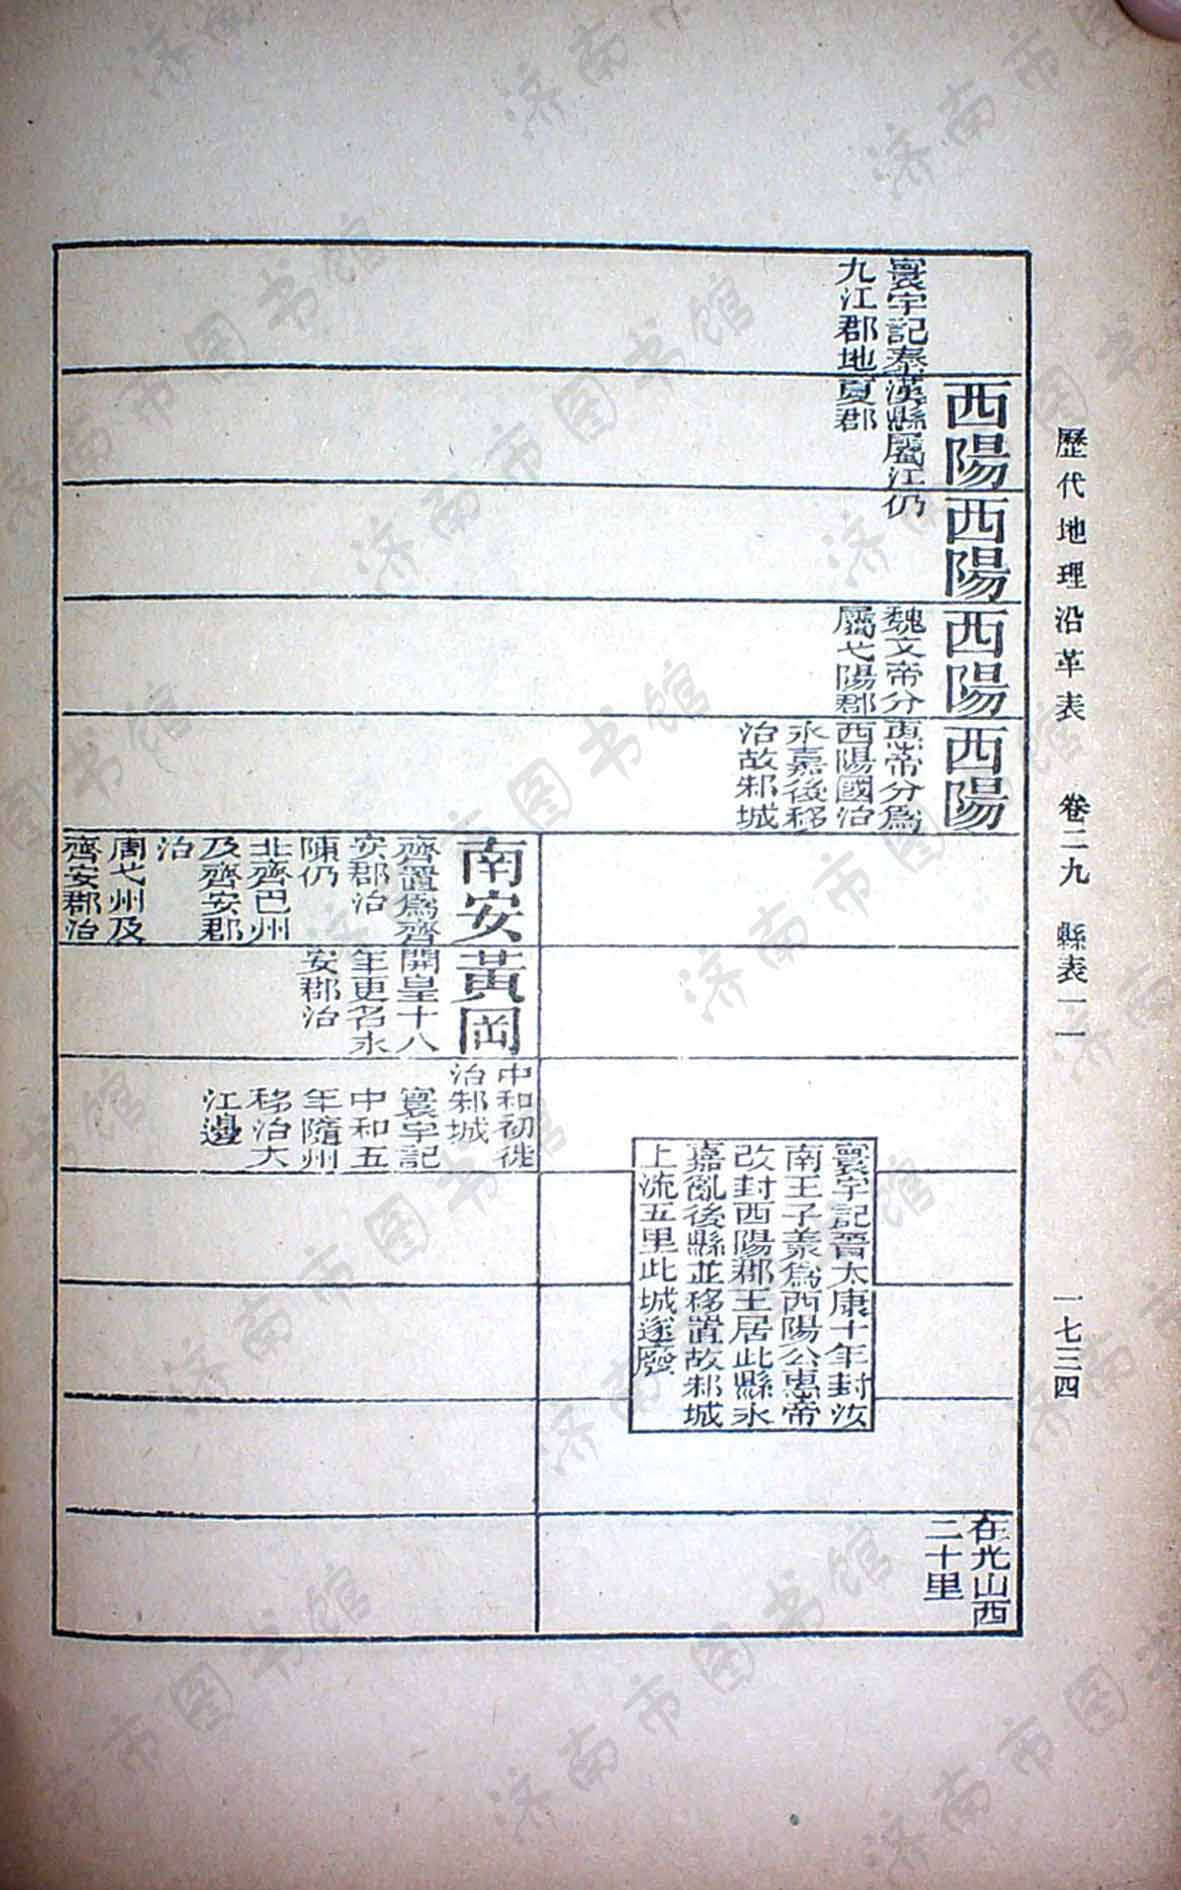 歷代地理沿革表 卷二九 縣表一一 一七三四
寰宇記秦
九江郡地
西陽
漢縣屬江
夏郡
西陽
仍
西陽
魏文帝分
屬弋陽郡
西陽
惠帝分爲
西陽國治
永嘉後移
治故邾城
寰宇記晉太康十年封汝
南王子羕爲西陽公惠帝
改封西陽郡王居此縣永
嘉亂後縣並移置故邾城
上流五里此城遂廢
在光山西
二十里
南安
齊置爲齊
安郡治
陳仍
北齊巴州
及齊安郡
治
周弋州及
齊安郡治
黃岡
開皇十八
年更名永
安郡治
中和初徙
治邾城
寰宇記
中和五
年隨州
移治大
江邊
济南市图书馆